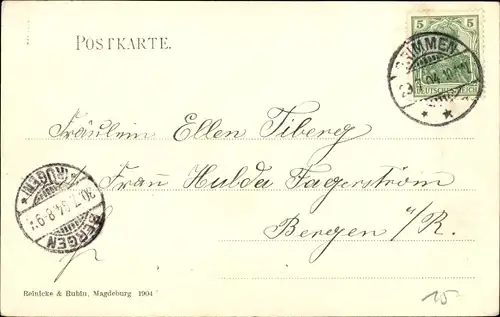 POSTKARTE.
5 5
DEUTSCHES REICH
GRIMMEN
Fräulein Ellen Tiberg
Frau Hulda Fagerström
Bergen a/R.
* (RÜGEN) *
30.7.04.8-9V.
BERGEN
Reinicke & Rubin, Magdeburg 1904
15